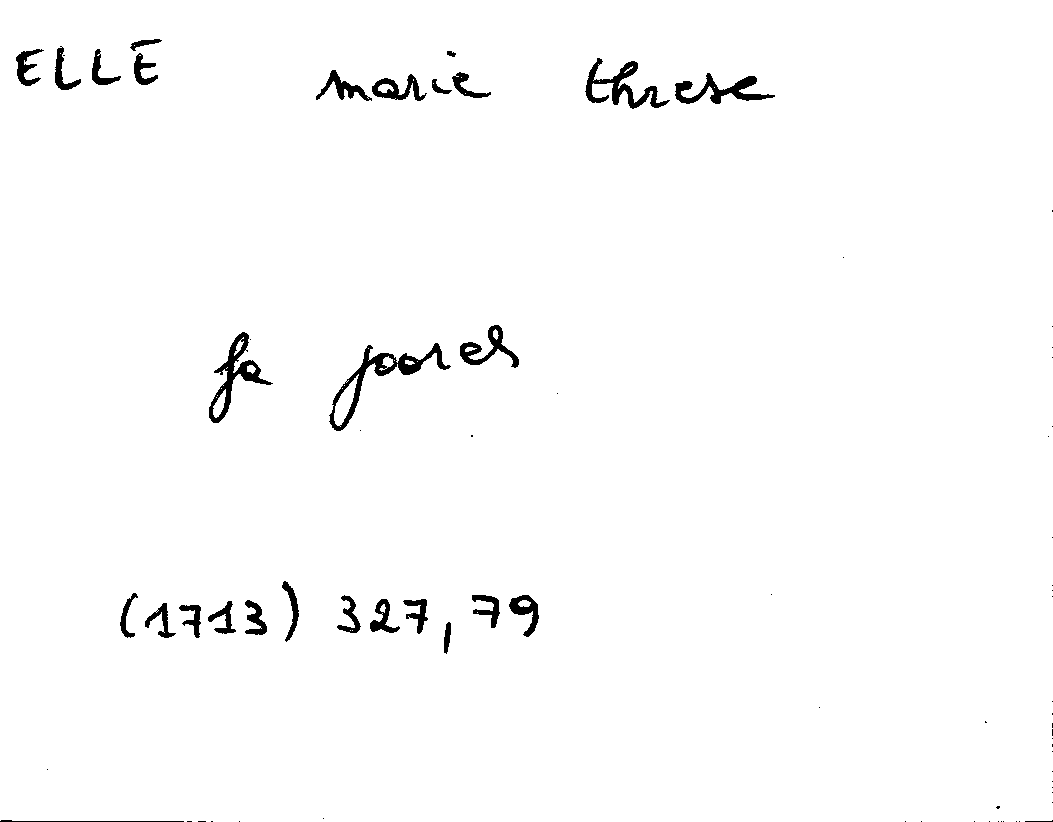 ELLE marie threse
fa joorek
(1713) 327,79